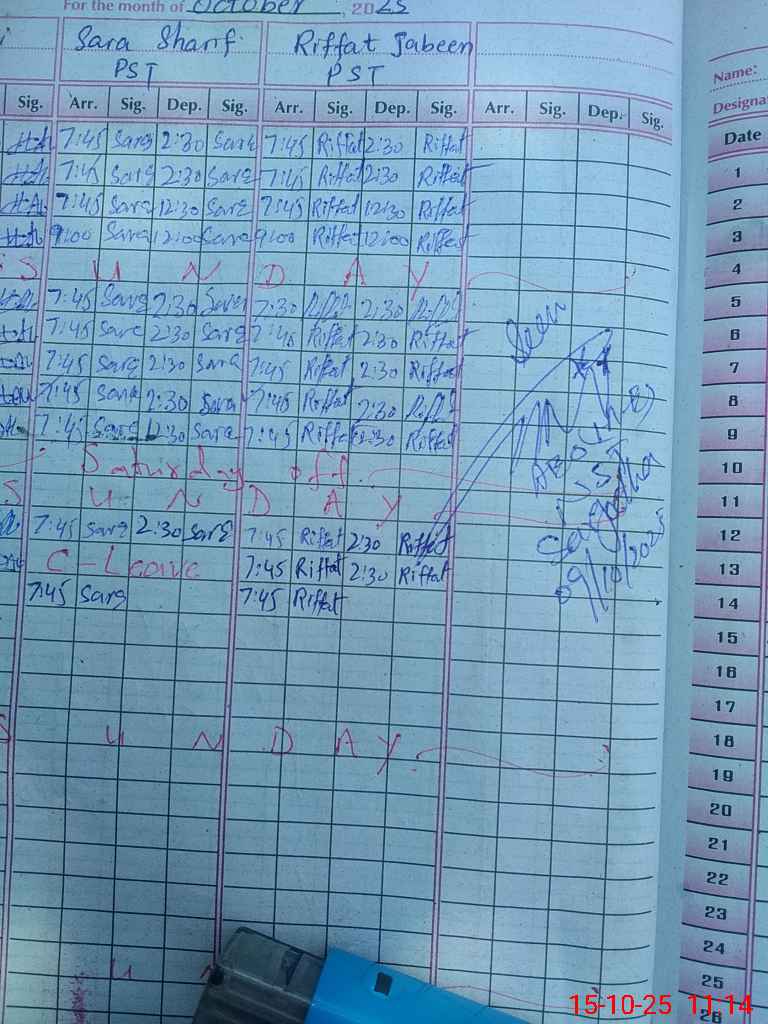 For the month of October, 2025
Sara Sharif. Riffat Jabeen
PST PST
Name:
Designa
Sig. Arr. Sig. Dep. Sig. Arr. Sig. Dep. Sig. Arr. Sig. Dep. Sig.
Date
7:45 Sara 2:30 Sara 7:45 Riffat 2:30 Riffat
1
7:45 Sara 2:30 Sara 7:45 Riffat 2:30 Riffat
2
7:45 Sara 12:30 Sara 7:45 Riffat 12:30 Riffat
3
9:00 Sara 12:00 Sara 9:00 Riffat 12:00 Riffat
4
S U N D A Y
5
7:45 Sara 2:30 Sara 2:30 2:30
Seen
6
7:45 Sara 2:30 Sara 7:45 Riffat 2:30 Riffat
7
7:45 Sara 2:30 Sara 7:45 Riffat 2:30 Riffat
8
7:45 Sara 2:30 Sara 7:45 Riffat 2:30
9
7:45 Sara 12:30 Sara 7:45 Riffat 12:30 Riffat
10
Saturday off
11
S U N D A Y
12
7:45 Sara 2:30 Sara 7:45 Riffat 2:30 Riffat
Sargodha
13
C-Leave 7:45 Riffat 2:30 Riffat
09/10/2025
14
7:45 Sara 7:45 Riffat
15
16
17
18
S U N D A Y
19
20
21
22
23
24
25
U N
26
15-10-25 11:14